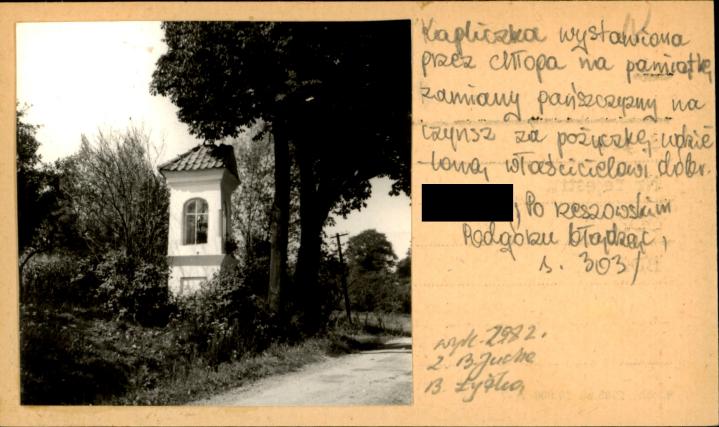 Kapliczka wystawiona
przez chłopa na pamiątkę
zamiany pańszczyzny na
czynsz za pożyczkę udzie-
loną właścicielowi dóbr.
, Po rzeszowskim
Podgórzu błądząc,
s. 303/
wyk. 1982 r.
Z. B.
B. Łyżka